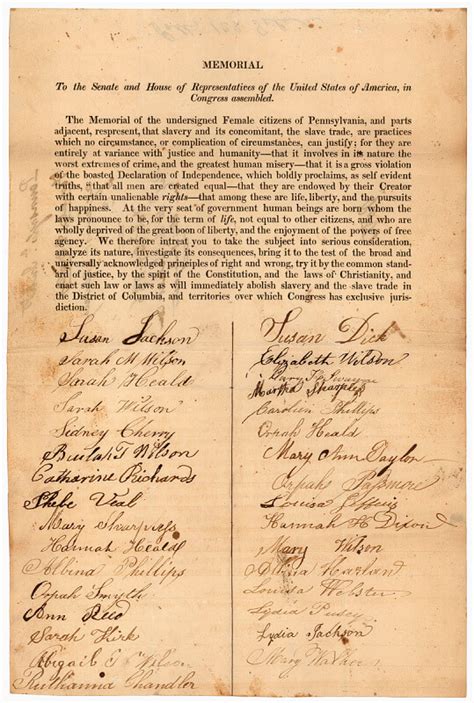 MEMORIAL
To the Senate and House of Representatives of the United States of America, in
Congress assembled.
The Memorial of the undersigned Female citizens of Pennsylvania, and parts
adjacent, respresent, that slavery and its concomitant, the slave trade, are practices
which no circumstance, or complication of circumstances, can justify; for they are
entirely at variance with justice and humanity—that it involves in its nature the
worst extremes of crime, and the greatest human misery—that it is a gross violation
of the boasted Declaration of Independence, which boldly proclaims, as self evident
truths, "that all men are created equal—that they are endowed by their Creator
with certain unalienable rights—that among these are life, liberty, and the pursuits
of happiness. At the very seat of government human beings are born whom the
laws pronounce to be, for the term of life, not equal to other citizens, and who are
wholly deprived of the great boon of liberty, and the enjoyment of the powers of free
agency. We therefore intreat you to take the subject into serious consideration,
analyze its nature, investigate its consequences, bring it to the test of the broad and
universally acknowledged principles of right and wrong, try it by the common stand-
ard of justice, by the spirit of the Constitution, and the laws of Christianity, and
enact such law or laws as will immediately abolish slavery and the slave trade in
the District of Columbia, and territories over which Congress has exclusive juris-
diction.
Susan Jackson
Sarah M Wilson
Sarah Heald
Sarah Wilson
Sidney Cherry
Beulah T Wilson
Catharine Richards
Phebe Veal
Mary Sharpless
Hannah Heald
Albina Phillips
Orpah Smyth
Ann Reed
Sarah Kirk
Abigail E Wilson
Ruthanna Chandler
Susan Dick
Elizabeth Wilson
Mary
Martha Sharples
Carolien Phillips
Orpah Heald
Mary Ann Taylor
Orpah Paſsmore
Louisa
Hannah H Dixon
Mary Wilson
Harlan
Louisa Webster
Lydia Pusey
Lydia Jackson
Mary